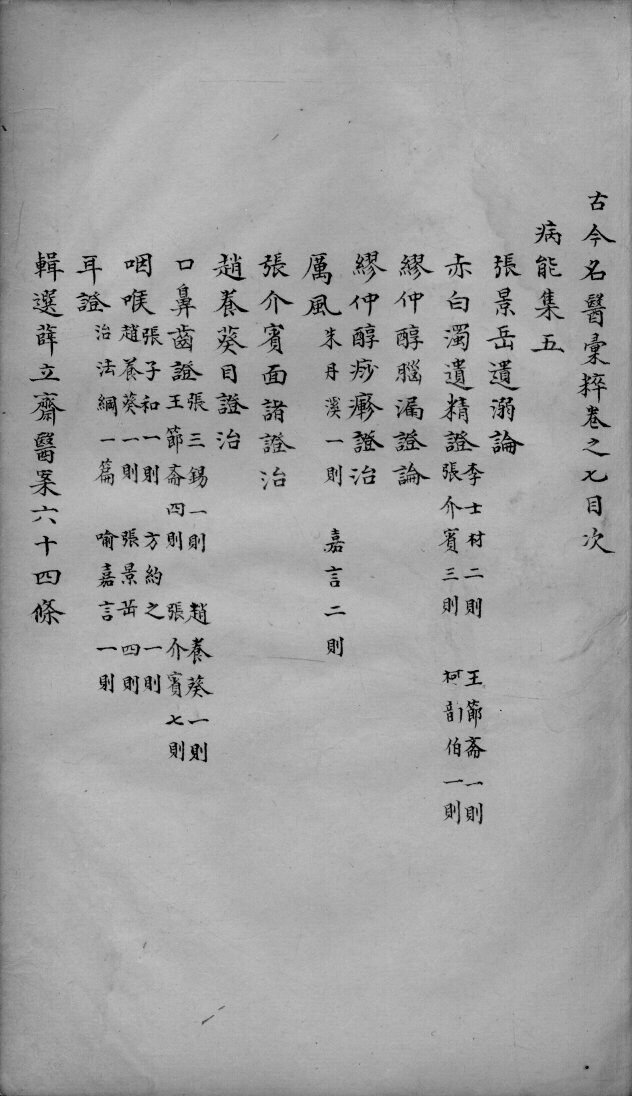 古今名醫彙粹卷之七目次
病能集五
張景岳遺溺論
赤白濁遺精證 李士材二則 王節斋一則 張介賓三則 柯韵伯一則
繆仲醇腦漏證論
繆仲醇痧瘮證治
厲風 朱丹溪一則 嘉言二則
張介賓面諸證治
趙養葵目證治
口鼻齒證 張三錫一則 趙養葵一則 王節斋四則 張介賓七則
咽喉 張子和一則 方約之一則 趙養葵一則 張景岳四則
耳證 治法綱一篇 喻嘉言一則
輯選薛立齋醫案六十四條